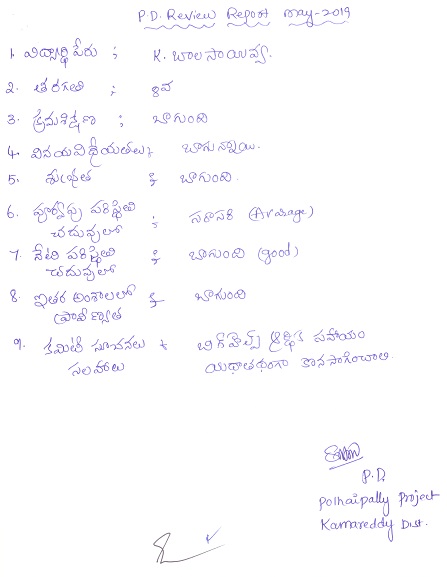 P.D. Review Report may-2019
1. విద్యార్థి పేరు ; K. బాలసాయివ్వ.
2. తరగతి ; 8వ
3. క్రమశిక్షణ ; బాగుంది
4. వినయవిధేయతలు ; బాగున్నాయి.
5. శుభ్రత ; బాగుంది.
6. పూర్వపు పరిస్థితి ; సరాసరి (Average)
చదువులో
7. నేటి పరిస్థితి ; బాగుంది (good)
చదువులో
8. ఇతర అంశాలలో ; బాగుంది
ప్రావీణ్యత
9. కమిటీ సూచనలు ; బిగ్ హెల్ప్ ఆర్థిక సహాయం
సలహాలు యధాతథంగా కొనసాగించాలి.
P.D.
Polhaipally Project
Kamareddy Dist.